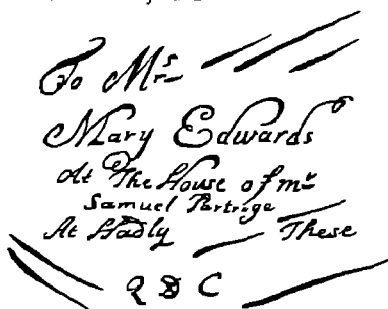 To Mrs
Mary Edwards
At The House of mr
Samuel Partrige
At Hadly These
Q D C